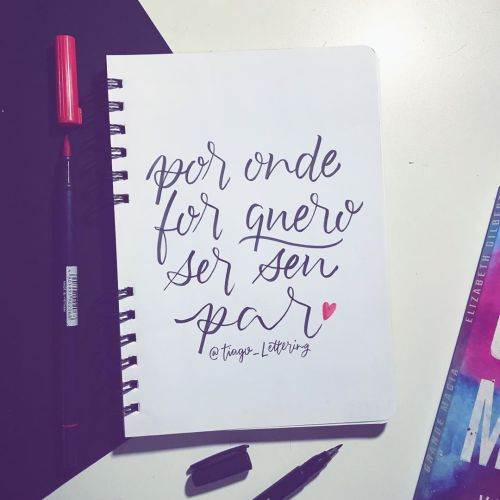 por onde
for quero
ser seu
par
@tiago_Lettering
ELIZABETH GILB
GRANDE MAGIA